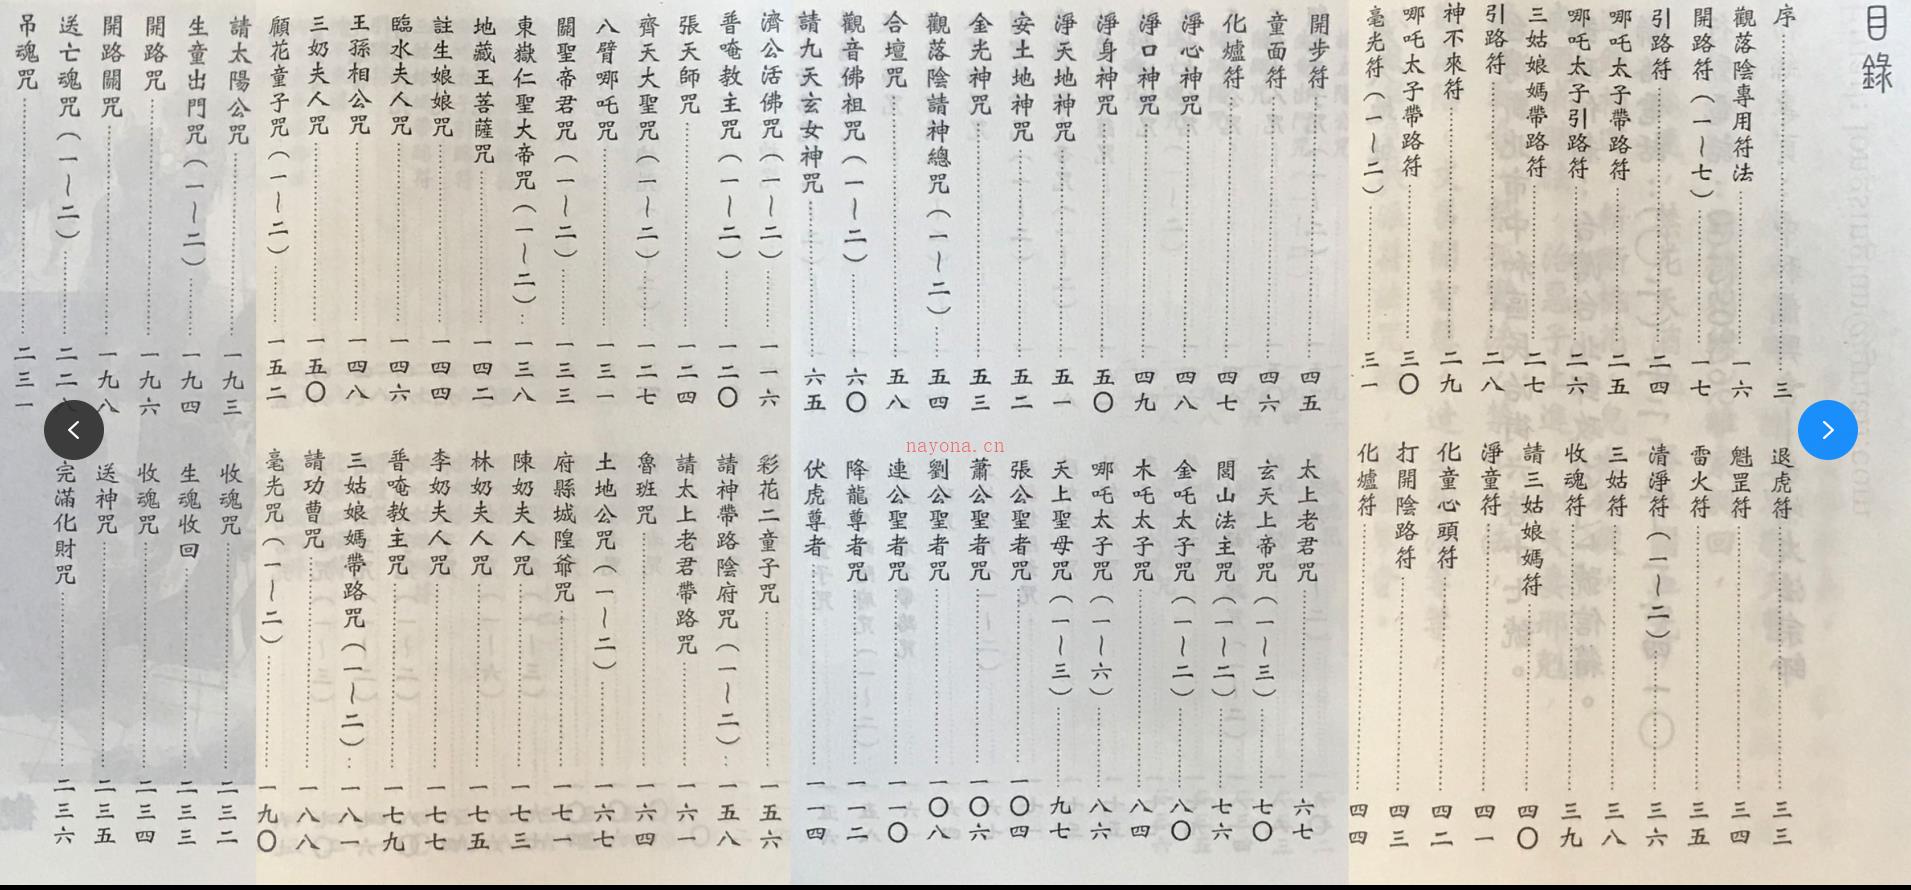 目錄
序 三
觀落陰專用符法 一六
開路符（一～七） 一七
引路符 二四
哪吒太子帶路符 二五
哪吒太子引路符 二六
三姑娘媽帶路符 二七
引路符 二八
神不來符 二九
哪吒太子帶路符 三〇
毫光符（一～二） 三一
退虎符 三三
魁罡符 三四
雷火符 三五
清淨符（一～二） 三六
三姑符 三八
收魂符 三九
請三姑娘媽符 四〇
淨童符 四一
化童心頭符 四二
打開陰路符 四三
化爐符 四四
開步符 四五
童面符 四六
化爐符 四七
淨心神咒 四八
淨口神咒 四九
淨身神咒 五〇
淨天地神咒 五一
安土地神咒 五二
金光神咒 五三
觀落陰請神總咒（一～二） 五四
合壇咒 五八
觀音佛祖咒（一～二） 六〇
請九天玄女神咒 六五
太上老君咒 六七
玄天上帝咒（一～三） 七〇
閭山法主咒（一～二） 七六
金吒太子咒（一～二） 八〇
木吒太子咒 八四
哪吒太子咒（一～六） 八六
天上聖母咒（一～三） 九七
張公聖者咒 一〇四
蕭公聖者咒 一〇六
劉公聖者咒 一〇八
連公聖者咒 一一〇
降龍尊者咒 一一二
伏虎尊者 一一四
濟公活佛咒（一～二） 一一六
普唵教主咒（一～二） 一二〇
張天師咒 一二四
齊天大聖咒（一～二） 一二七
八臂哪吒咒 一三一
關聖帝君咒（一～二） 一三三
東嶽仁聖大帝咒（一～二） 一三八
地藏王菩薩咒 一四二
註生娘娘咒 一四四
臨水夫人咒 一四六
王孫相公咒 一四八
三奶夫人咒 一五〇
顧花童子咒（一～二） 一五二
彩花二童子咒 一五六
請神帶路陰府咒（一～二） 一五八
請太上老君帶路咒 一六一
魯班咒 一六四
土地公咒（一～二） 一六七
府縣城隍爺咒 一七一
陳奶夫人咒 一七三
林奶夫人咒 一七五
李奶夫人咒 一七七
普唵教主咒 一七九
三姑娘媽帶路咒（一～二） 一八一
請功曹咒 一八八
毫光咒（一～二） 一九〇
請太陽公咒 一九三
生童出門咒（一～二） 一九四
開路咒 一九六
開路關咒 一九八
送亡魂咒（一～二） 二二
吊魂咒 二三一
收魂咒 二三二
生魂收回 二三三
收魂咒 二三四
送神咒 二三五
完滿化財咒 二三六
nayona.cn